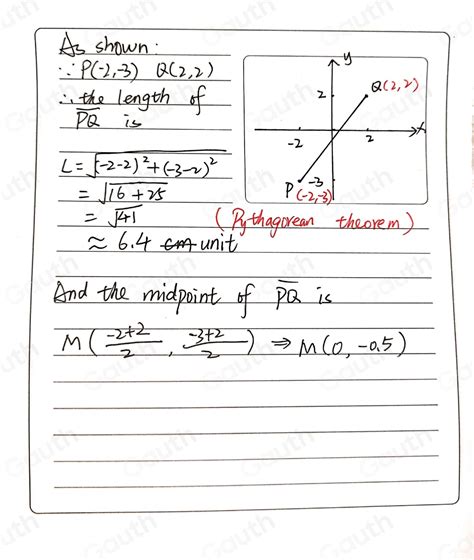 As shown:
∵ P(-2,-3) Q(2,2)
∴ the length of
PQ is
L = √(-2-2)²+(-3-2)²
= √16+25
= √41
≈ 6.4 cm unit
(Pythagorean theorem)
y
Q(2,2)
2
x
-2
2
-3
P
(-2,-3)
And the midpoint of PQ is
M(-2+2/2, -3+2/2) ⇒ M(0, -0.5)
Gauth